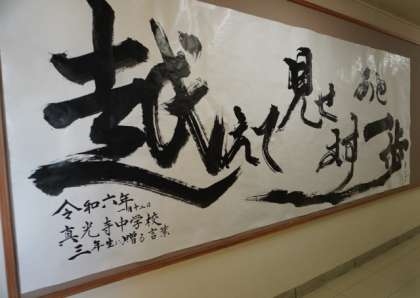 越えて
見せ
あと
一歩
令和六年
真光寺中学校
三年生に贈る言葉